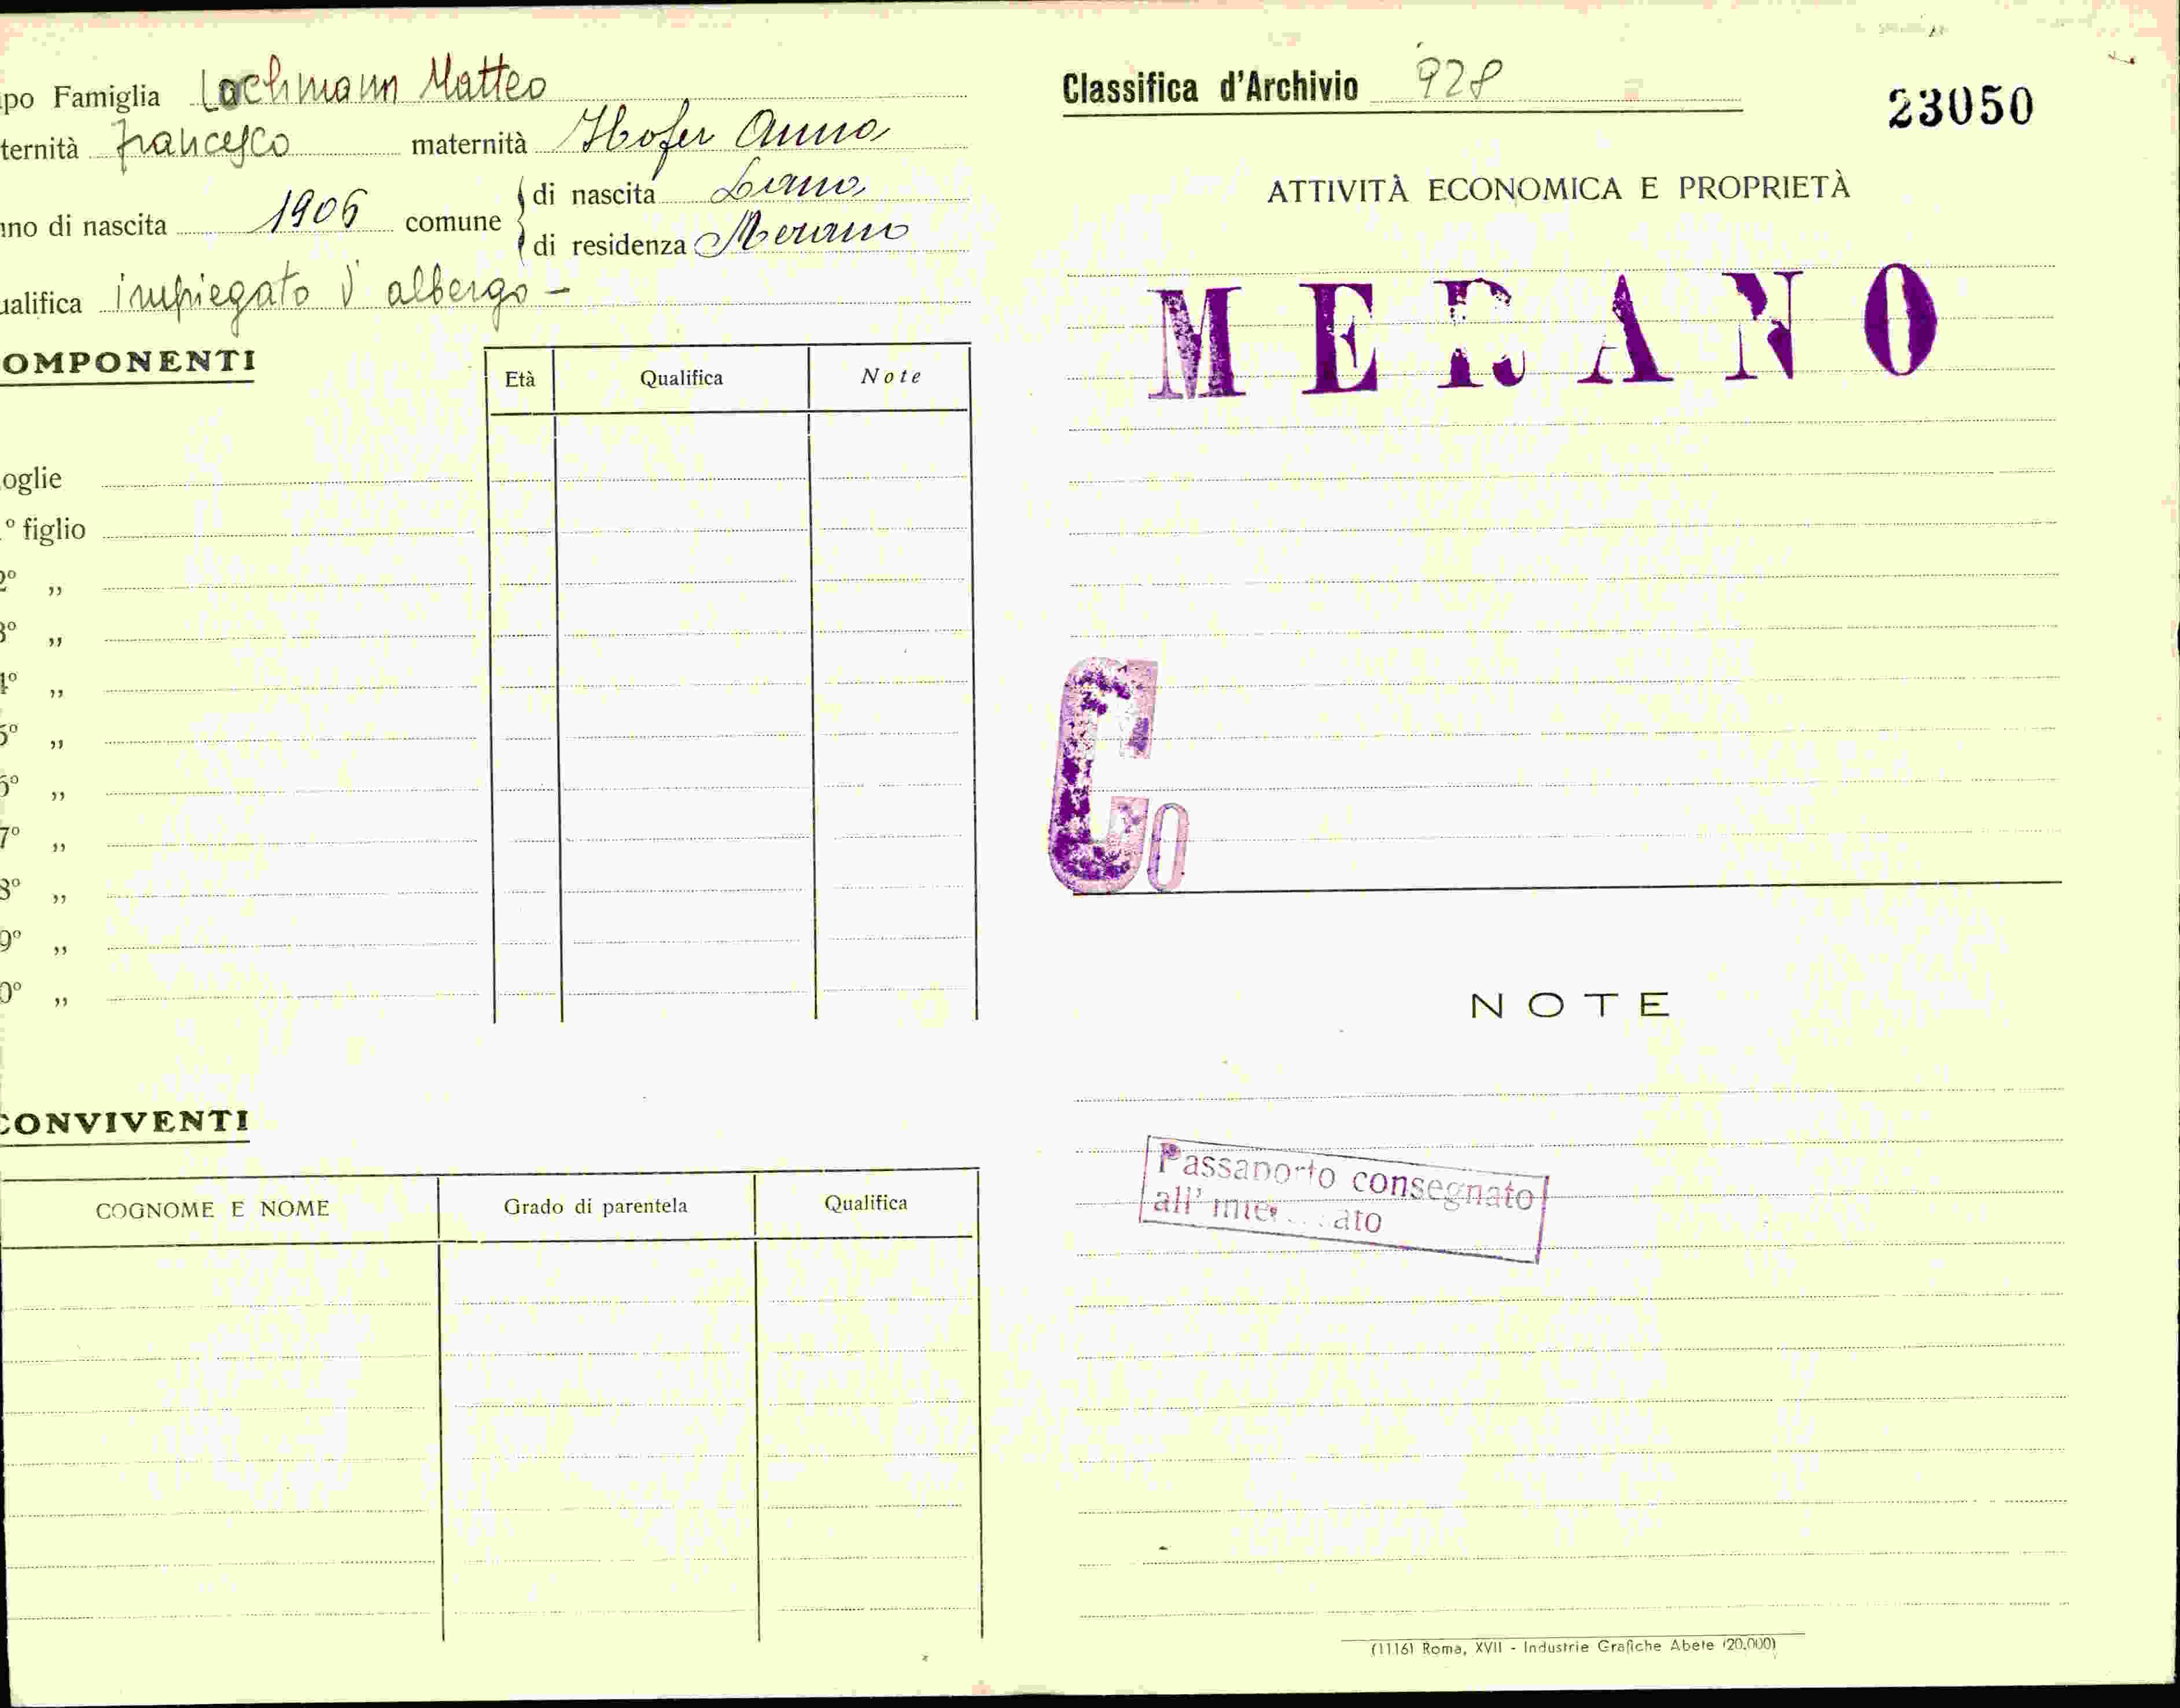 po Famiglia Lachmann Matteo
ternità Francesco maternità Hofer Anna
nno di nascita 1906 comune di nascita Lana
di residenza Merano
ualifica impiegato d'albergo -
OMPONENTI
Età Qualifica Note
oglie
° figlio
2° ,,
3° ,,
4° ,,
5° ,,
6° ,,
7° ,,
8° ,,
9° ,,
0° ,,
CONVIVENTI
COGNOME E NOME Grado di parentela Qualifica
Classifica d'Archivio 928
23050
ATTIVITÀ ECONOMICA E PROPRIETÀ
MERANO
C0
NOTE
Passaporto consegnato
all'
(1116) Roma, XVII - Industrie Grafiche Abete (20.000)